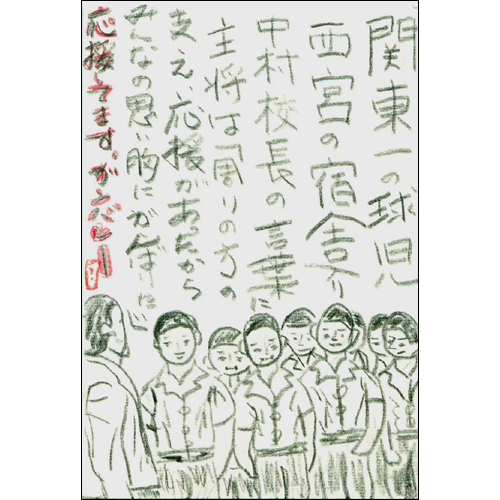 関東一の球児
西宮の宿舎で
中村校長の言葉に
主将は「周りの方の
支え、応援があったから
みんなの思い胸にがんばりたい
応援してます。ガンバレー!